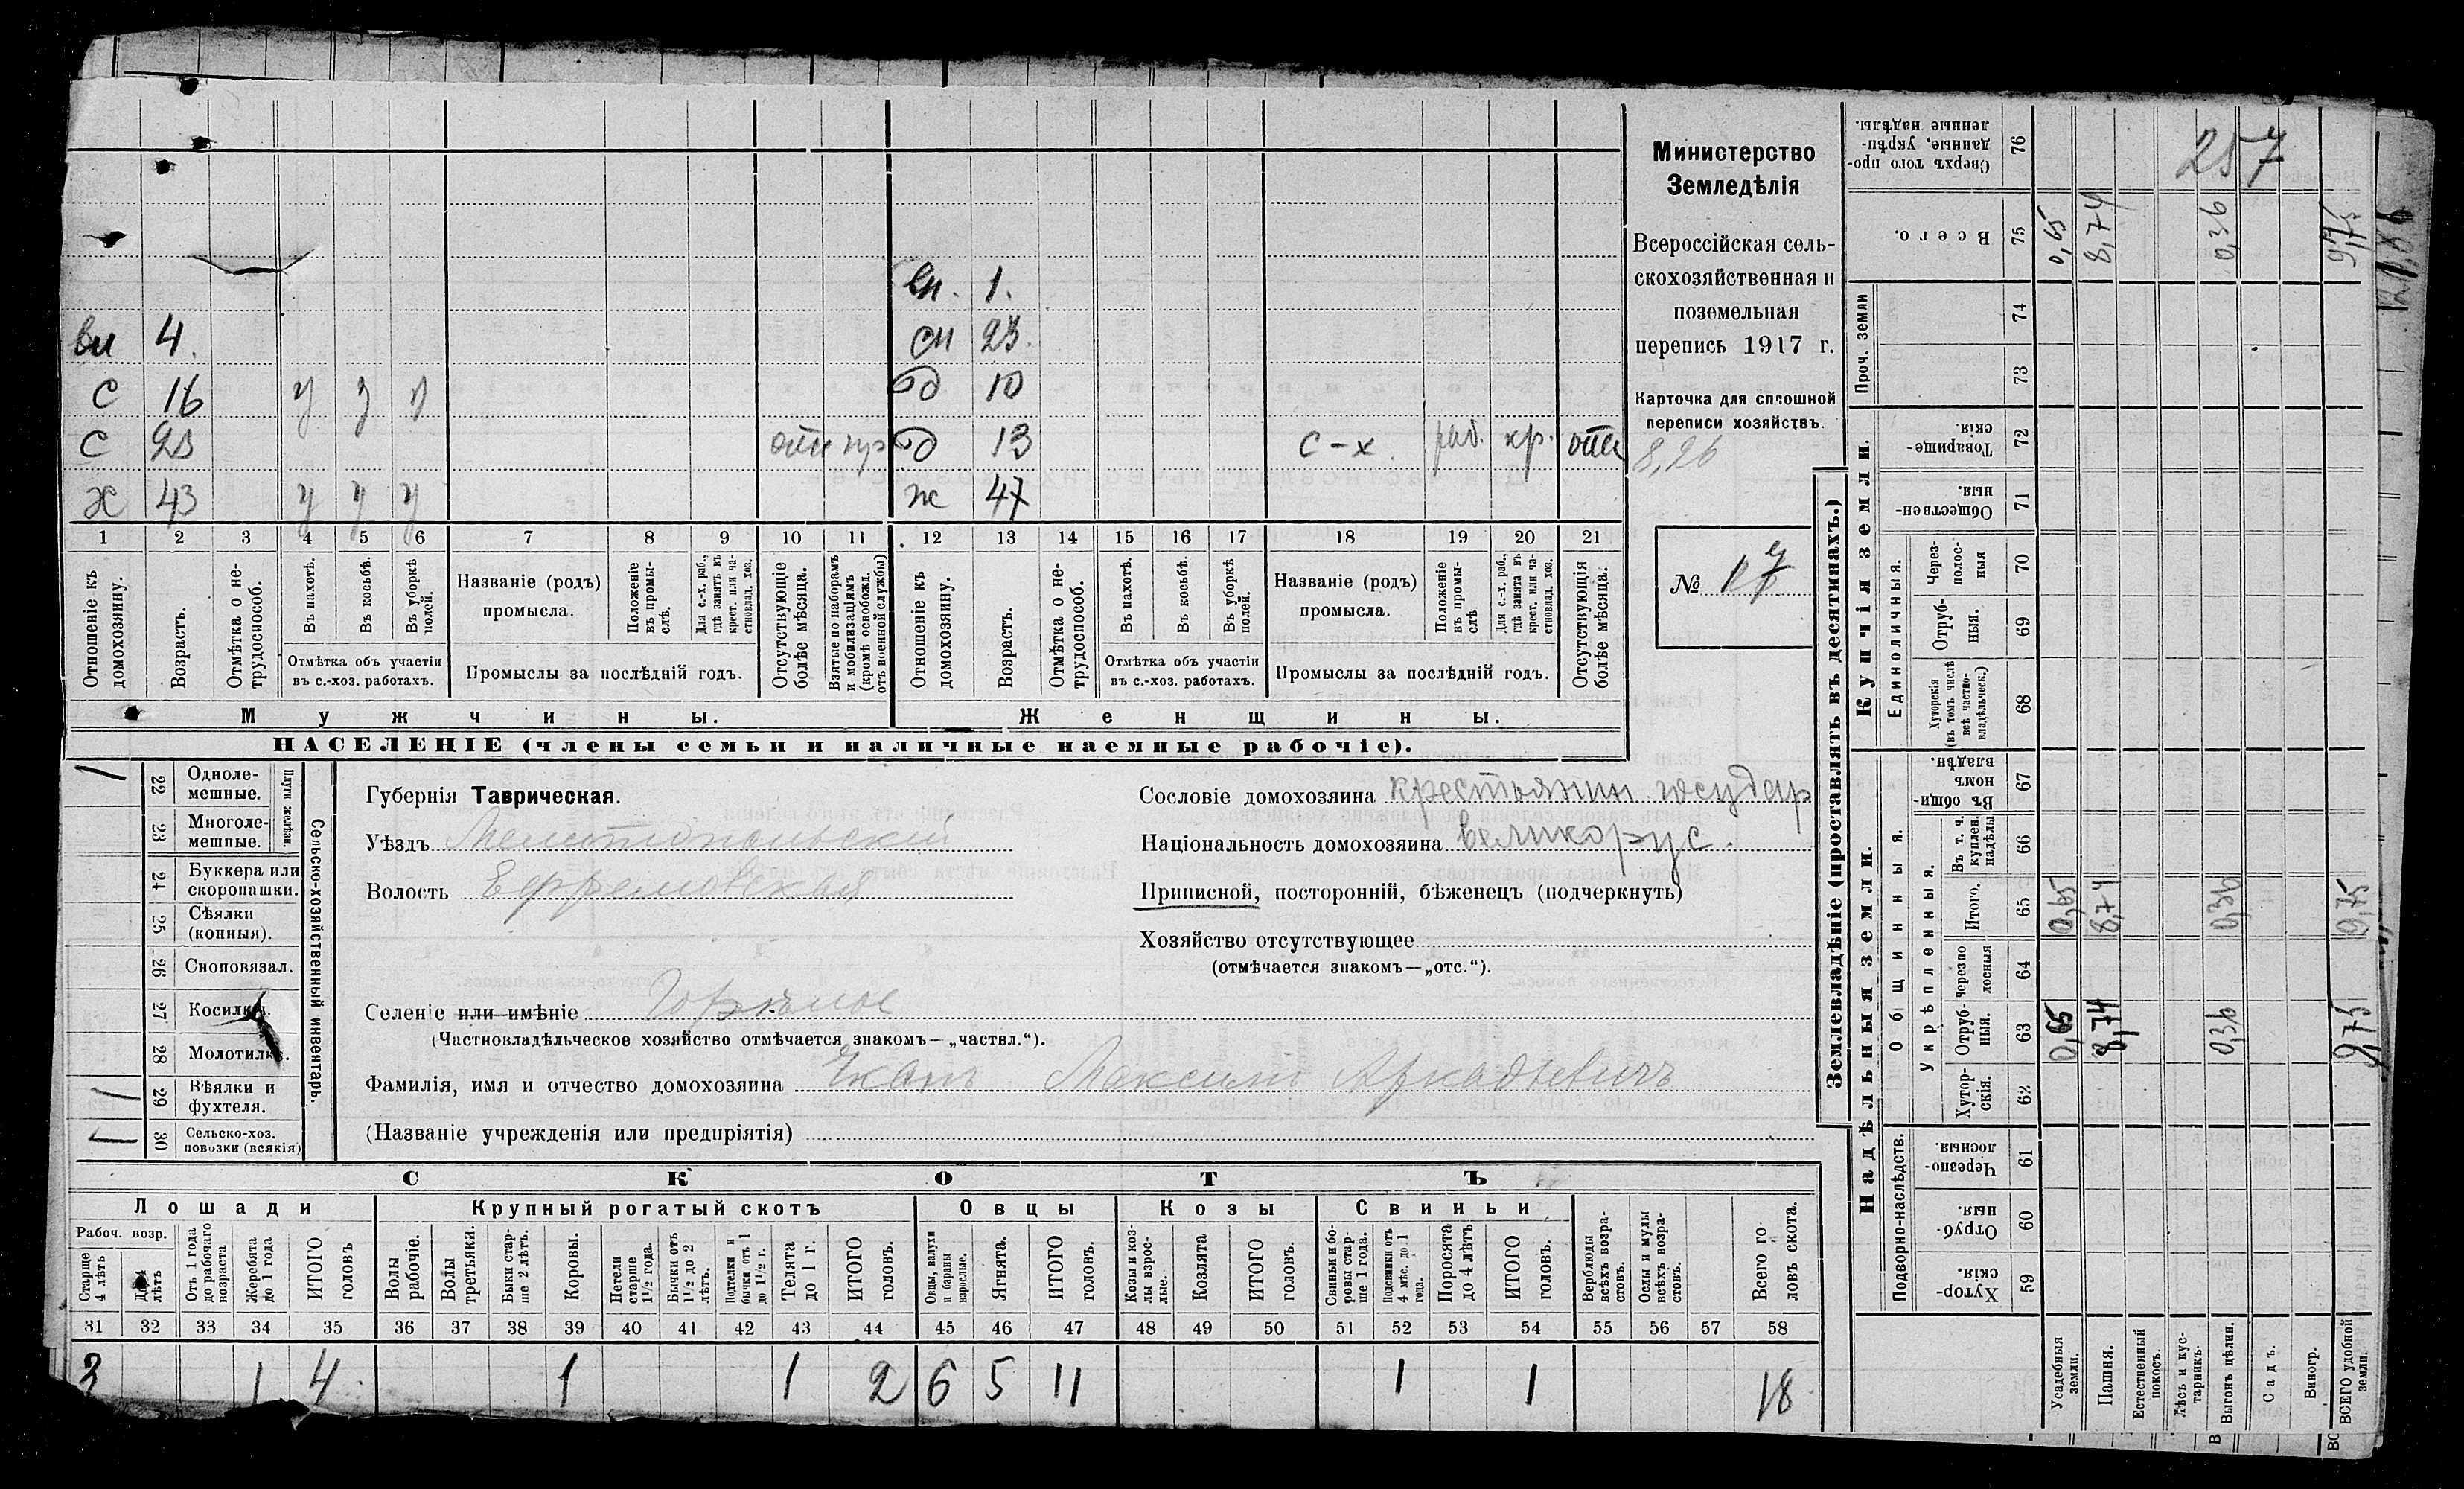 вн. 1.
вн 4. сн 23.
С 16 у у у д 10
С 23 отс пр д 13 с-х. раб. кр. отс
Х 43 у у у ж 47
1 2 3 4 5 6 7 8 9 10 11 12 13 14 15 16 17 18 19 20 21
Отношеніе къ домохозяину.
Возрастъ.
Отмѣтка о нетрудоспособ.
Въ пахотѣ.
Въ косьбѣ.
Въ уборкѣ полей.
Отмѣтка объ участіи
въ с.-хоз. работахъ.
Названіе (родъ)
промысла.
Положеніе въ промыслѣ.
Для с.-х. раб., гдѣ занятъ въ крест. или частновлад. хоз.
Промыслы за послѣдній годъ.
Отсутствующіе болѣе мѣсяца.
Взятые по наборамъ и мобилизаціямъ (кромѣ освобожд. отъ военной службы)
Отношеніе къ домохозяину.
Возрастъ.
Отмѣтка о нетрудоспособ.
Въ пахотѣ.
Въ косьбѣ.
Въ уборкѣ полей.
Отмѣтка объ участіи
въ с.-хоз. работахъ.
Названіе (родъ)
промысла.
Положеніе въ промыслѣ
Для с.-х. раб., гдѣ занята въ крест. или частновлад. хоз.
Промыслы за послѣдній годъ.
Отсутствующія болѣе мѣсяца.
Мужчины. Женщины.
НАСЕЛЕНІЕ (члены семьи и наличные наемные рабочіе).
Министерство
Земледѣлія
Всероссійская сель-
скохозяйственная и
поземельная
перепись 1917 г.
Карточка для сплошной
переписи хозяйствъ.
8,26
№ 17
Сельско-хозяйственный инвентарь.
Плуги желѣзн.
22 Одноле-
мешные.
23 Многоле-
мешные.
24 Буккера или
скоропашки.
25 Сѣялки
(конныя).
26 Сноповязал.
27 Косилки.
28 Молотилки.
29 Вѣялки и
фухтеля.
30 Сельско-хоз.
повозки (всякія)
Губернія Таврическая.
Уѣздъ Мелитопольскій
Волость Ефремовская
Селеніе или имѣніе
(Частновладѣльческое хозяйство отмѣчается знакомъ—„частвл.“).
Фамилія, имя и отчество домохозяина Максимъ Аркадьевичъ
(Названіе учрежденія или предпріятія)
Сословіе домохозяина крестьянин государ
Національность домохозяина великорус.
Приписной, посторонній, бѣженецъ (подчеркнуть)
Хозяйство отсутствующее
(отмѣчается знакомъ—„отс.“).
СКОТЪ
Лошади Крупный рогатый скотъ Овцы Козы Свиньи
Рабоч. возр.
Старше 4 лѣтъ
До 4 лѣтъ
Отъ 1 года до рабочаго возраста
Жеребята до 1 года
ИТОГО головъ
Волы рабочіе.
Волы третьяки.
Быки старше 2 лѣтъ.
Коровы.
Нетели старше 1½ года.
Бычки отъ 1½ до 2 лѣтъ.
Подтелки и бычки отъ 1 до 1½ г.
Телята до 1 г.
ИТОГО головъ.
Овцы, валухи и бараны взрослые.
Ягнята.
ИТОГО головъ.
Козы и козлы взрослые.
Козлята
ИТОГО головъ.
Свиньи и боровы старше 1 года.
Подсвинки отъ 4 мѣс. до 1 года.
Поросята до 4 лѣтъ
ИТОГО головъ.
Верблюды всѣхъ возрастовъ.
Ослы и мулы всѣхъ возрастовъ.
Всего головъ скота.
31 32 33 34 35 36 37 38 39 40 41 42 43 44 45 46 47 48 49 50 51 52 53 54 55 56 57 58
3 1 4 1 1 2 6 5 11 1 1 18
Землевладѣніе (проставлять въ десятинахъ.)
Надѣльныя земли. Купчія земли.
Проч. земли
Подворно-наслѣдств.
Общинныя.
Укрѣпленныя.
Единоличныя.
Сверхъ того проданные, укрѣпленные надѣлы. 76 257
Всего. 75 0,65 8,74 0,36 9,75
74
73
Товарищескія. 72
Общественныя. 71
Черезполосныя 70
Отрубныя. 69
Хуторскія (въ томъ числѣ всѣ частновладѣльческ.) 68
Въ общиномъ владѣн. 67
Въ т. ч. куплен. надѣлы 66
Итого. 65 0,65 8,74 0,36 9,75
Черезполосныя 64
Отрубныя. 63 0,65 8,74 0,36 9,75
Хуторскія. 62
Черезполосныя 61
Отрубныя. 60
Хуторскія. 59
Усадебныя земли.
Пашня.
Естественный покосъ.
Лѣсъ и кустарникъ.
Выгонъ цѣлин.
Садъ.
Виногр.
ВСЕГО удобной земли.